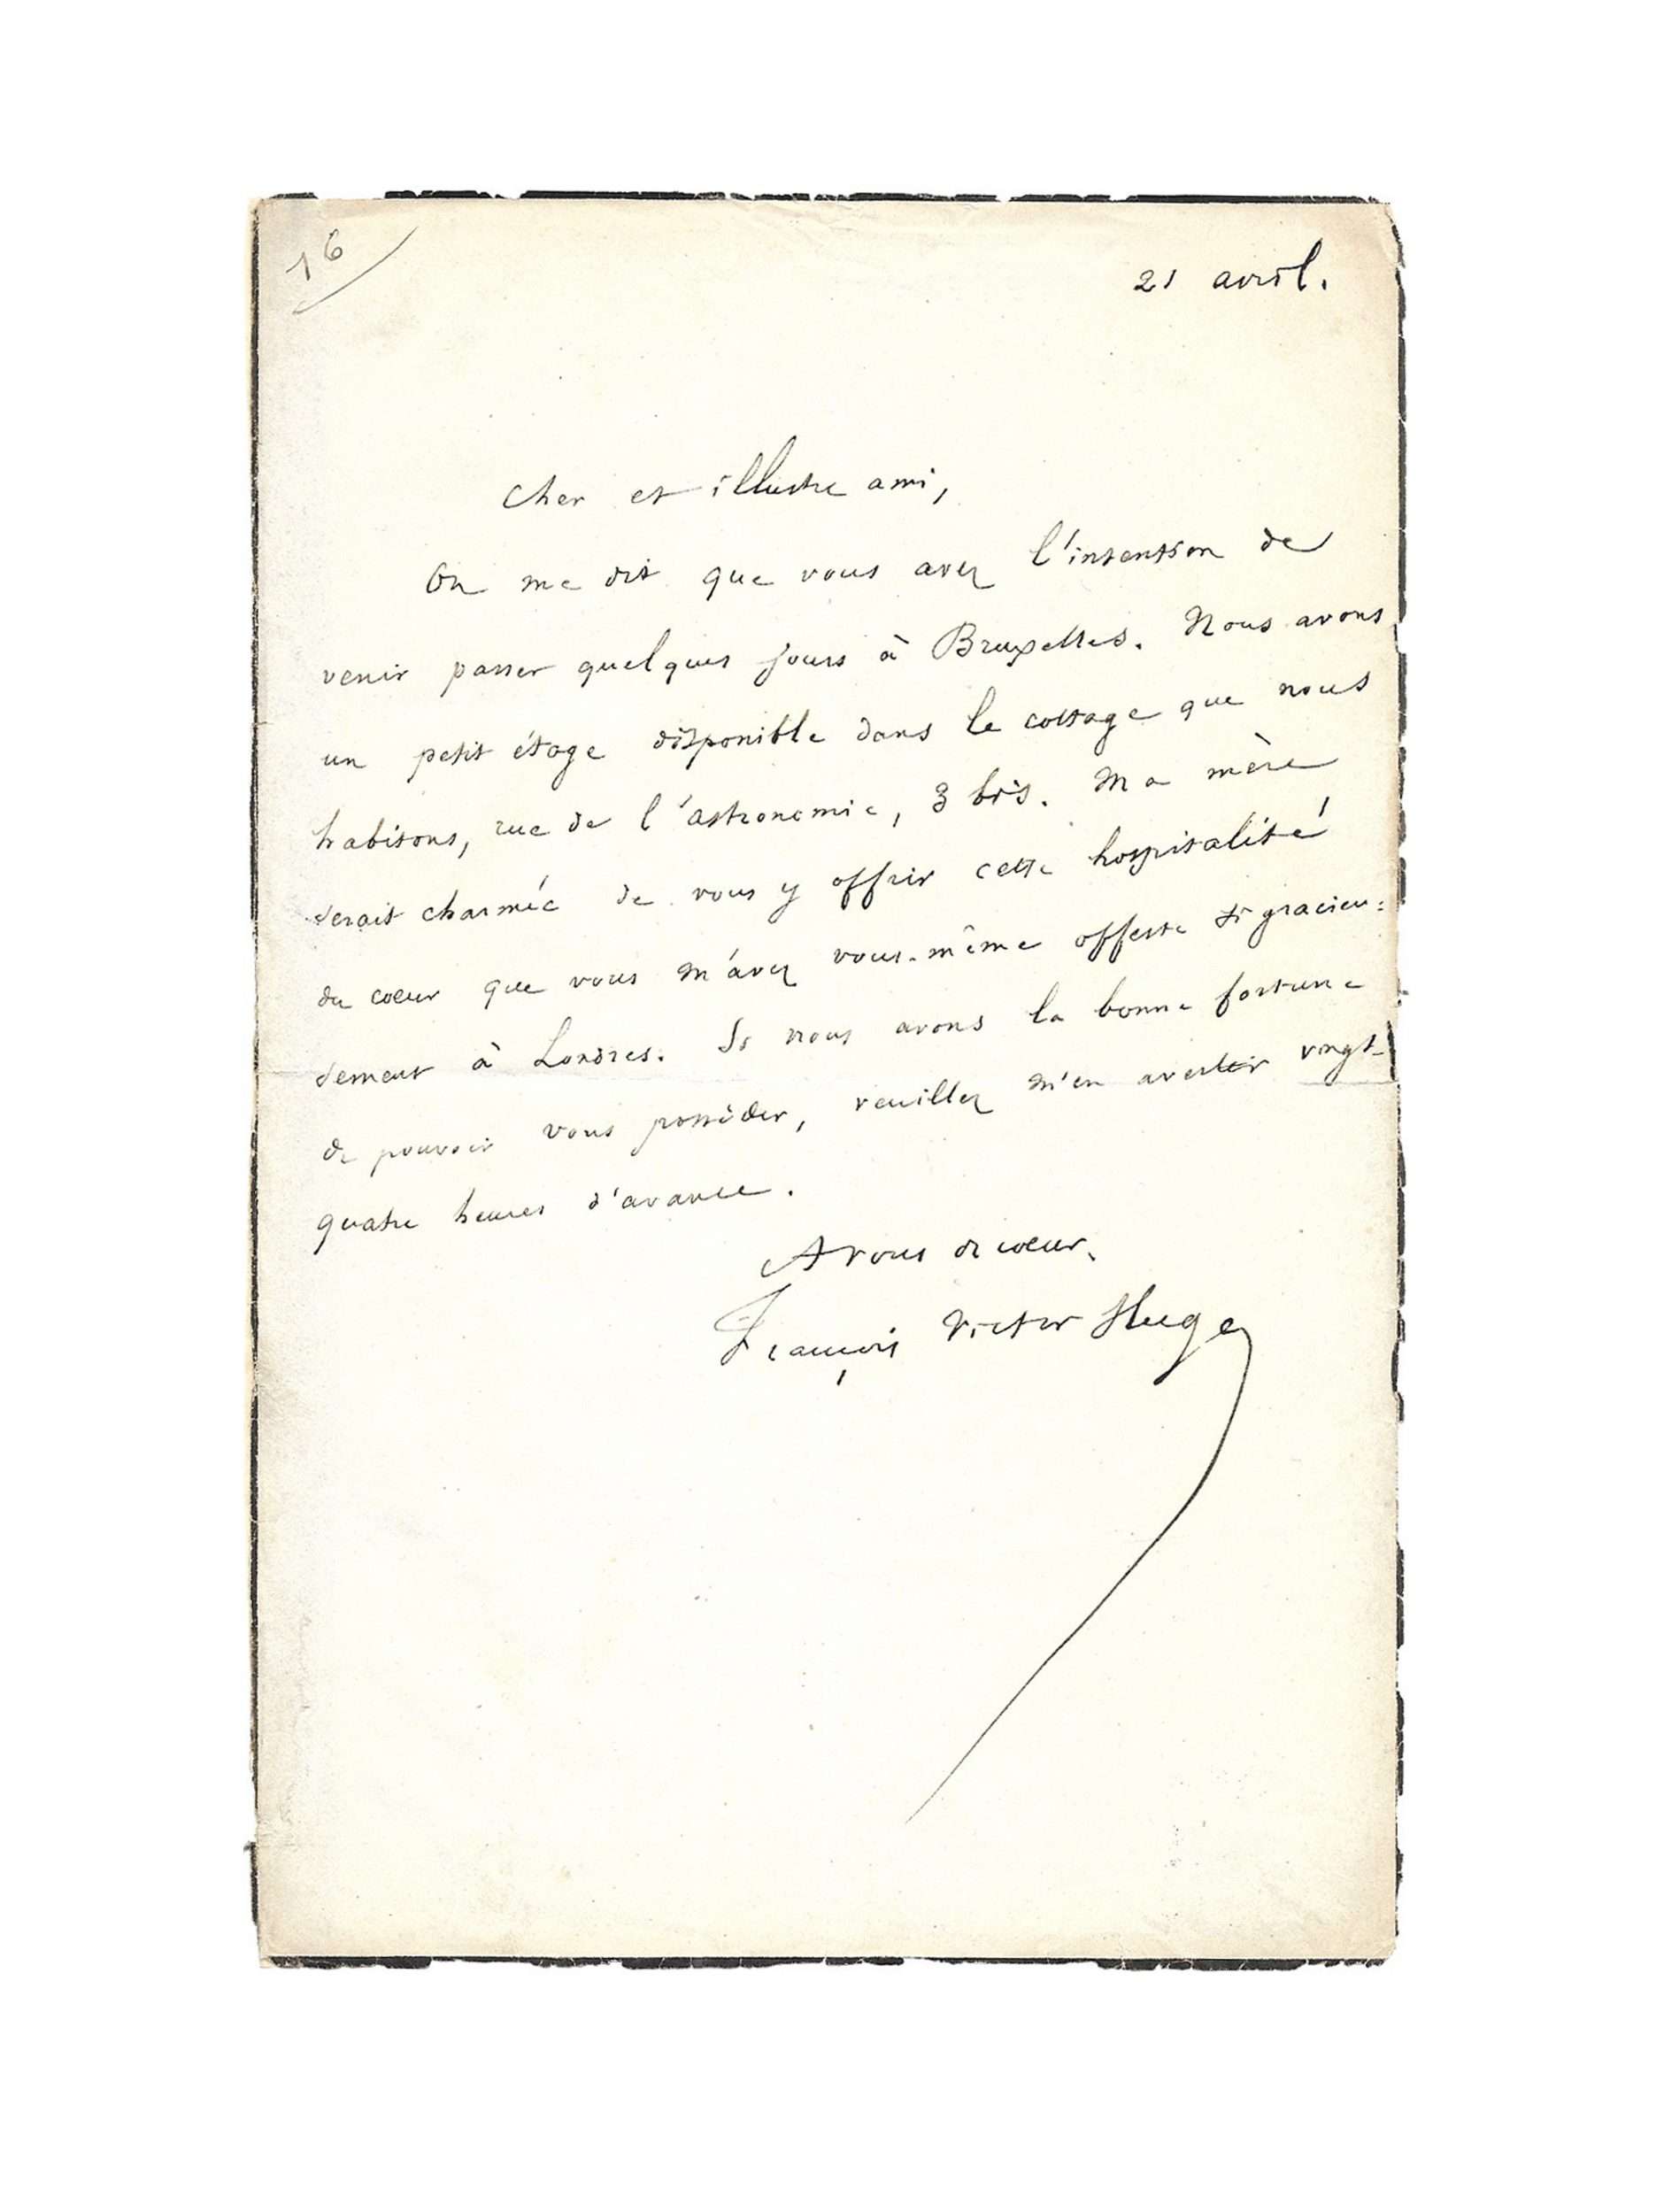 16
21 avril.
Cher et illustre ami,
On me dit que vous avez l'intention de
venir passer quelques jours à Bruxelles. Nous avons
un petit étage disponible dans le cottage que nous
habitons, rue de l'astronomie, 3 bis. Ma mère
serait charmée de vous y offrir cette hospitalité
du coeur que vous m'avez vous-même offerte si gracieu=
sement à Londres. Si nous avons la bonne fortune
de pouvoir vous posséder, veuillez m'en avertir vingt-
quatre heures d'avance.
A vous de coeur.
François Victor Hugo